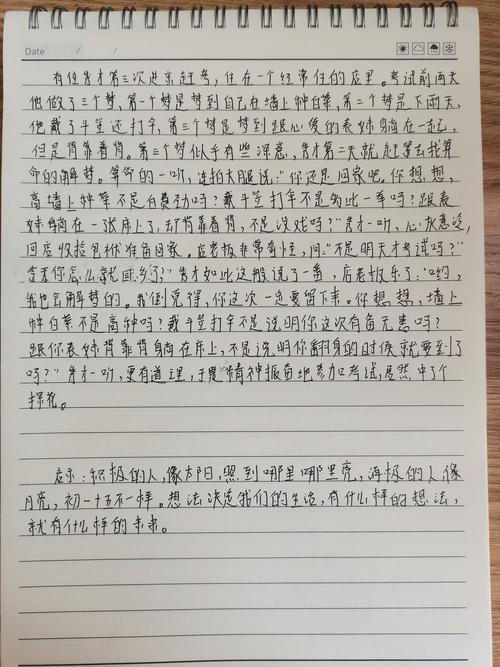 Date / /
有位秀才第三次进京赶考，住在一个经常住的店里。考试前两天
他做了三个梦，第一个梦是梦到自己在墙上种白菜，第二个梦是下雨天，
他戴了斗笠还打伞，第三个梦是梦到跟心爱的表妹躺在一起，
但是背靠着背。第三个梦似乎有些深意，秀才第二天就赶紧去找算
命的解梦。算命的一听，连拍大腿说："你还是回家吧。你想想，
高墙上种菜不是白费劲吗？戴斗笠打伞不是多此一举吗？跟表
妹躺在一张床上了，却背靠着背，不是没戏吗？"秀才一听，心灰意冷，
回店收拾包袱准备回家。店老板非常奇怪，问："不是明天才考试吗？
今天你怎么就回乡了？"秀才如此这般说了一番，店老板乐了："哟，
我也会解梦的。我倒觉得，你这次一定要留下来。你想想，墙上
种白菜不是高种吗？戴斗笠打伞不是说明你这次有备无患吗？
跟你表妹背靠背躺在床上，不是说明你翻身的时候就要到了
吗？"秀才一听，更有道理，于是精神振奋地参加考试，居然中了个
探花。
启示：积极的人，像太阳，照到哪里哪里亮，消极的人像
月亮，初一十五不一样。想法决定我们的生活，有什么样的想法，
就有什么样的未来。